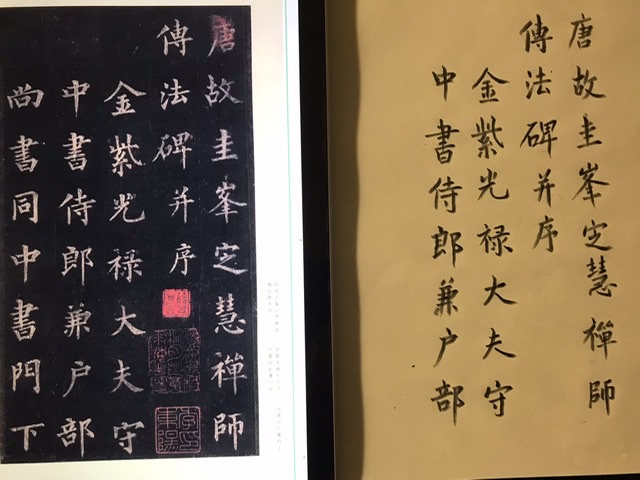 唐故圭峯定慧禪師
傳法碑并序
金紫光禄大夫守
中書侍郎兼户部
尚書同中書門下
唐故圭峯定慧禪師
傳法碑并序
金紫光禄大夫守
中書侍郎兼户部